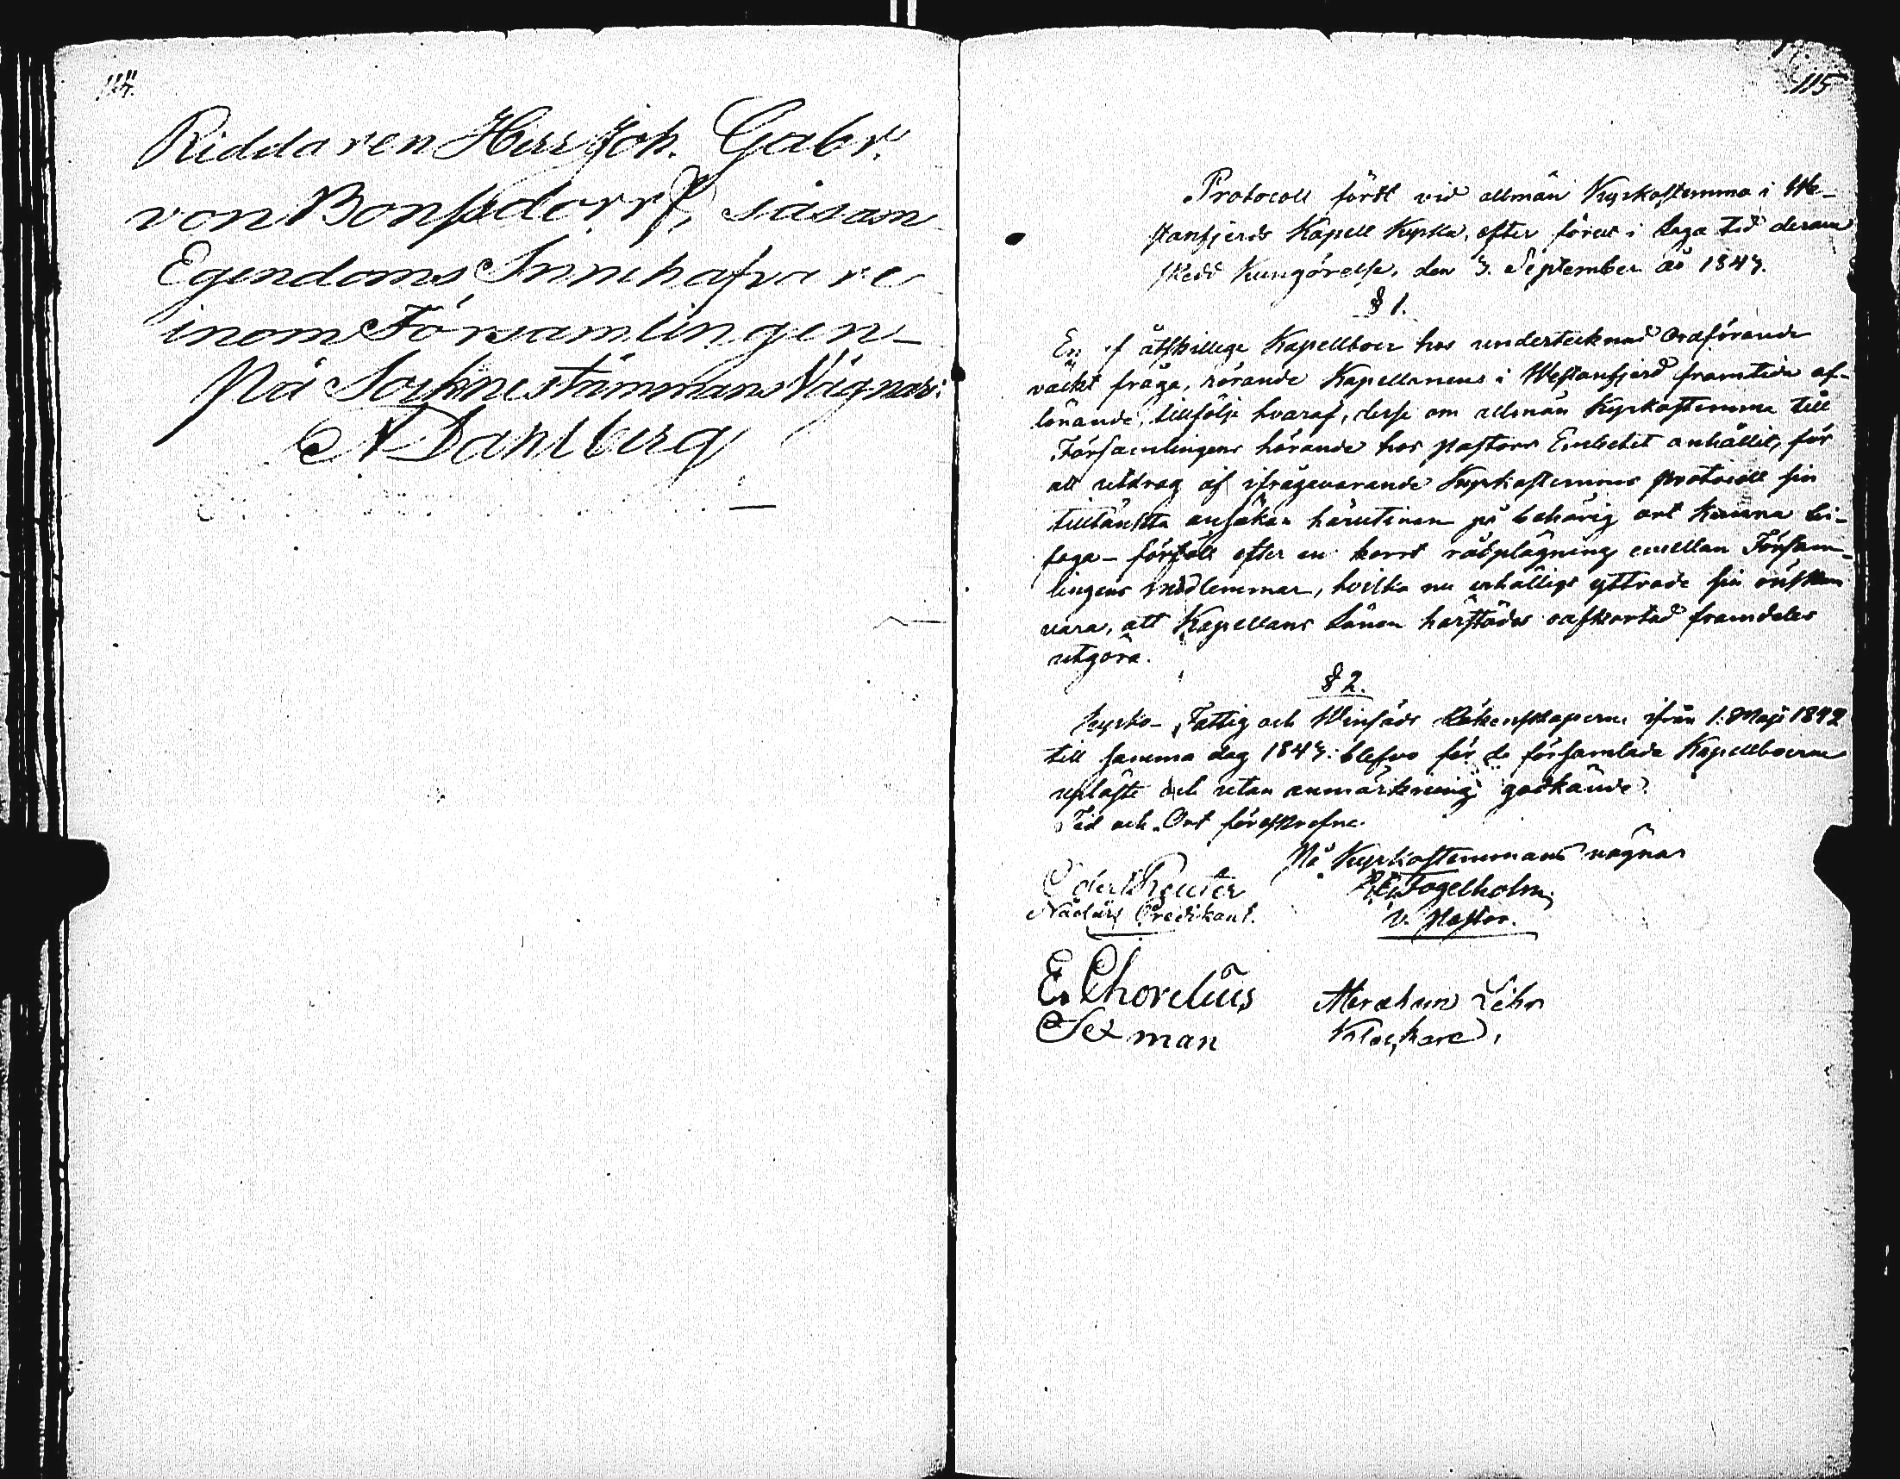 114.
Riddaren Herr Joh. Gabr.
von Bonsdorff, såsom
Egendoms Innehafvare
inom Församlingen –
På Socknestämmans Vägnar:
A Dahlberg
115
Protocoll fördt vid allmän Kyrkostemma i We-
stanfjerds Kapell Kyrka, efter förut i laga tid derom
skedd Kungörelse, den 3. September år 1843.
§ 1.
En af åtskillige Kapellboer hos undertecknad Ordförande
väckt fråga, rörande Kapellanens i Westanfjerd framtida af-
lönande, tillfölje hvaraf, desse om allmän Kyrkostemma till
Församlingens hörande hos pastors Embetet anhållit, för
att utdrag af ifrågavarande Kyrkostemmas protocoll sin
tilltänkta ansökan härutinnan på behörig ort kunna bi-
foga – förföll efter en kort rådplägning emellan Försam-
lingens medlemmar, hvilka nu enhälligt yttrade sin önskan
vara, att Kapellans Lönen härstädes oafkortad framdeles
utgöra.
§ 2.
Kyrko-, Fattig och Winfåds Räkenskaperne ifrån 1. Maji 1842
till samma dag 1843: blefvo för de församlade Kapellboerne
upläste och utan anmärkning godkände.
Tid och Ort föreskrefne.
På Kyrkostemmans vägnar
Reuter Fogelholm
Nådårs Predikant. v. Pastor.
E. Chorelius Abraham
Sexman Klockare.